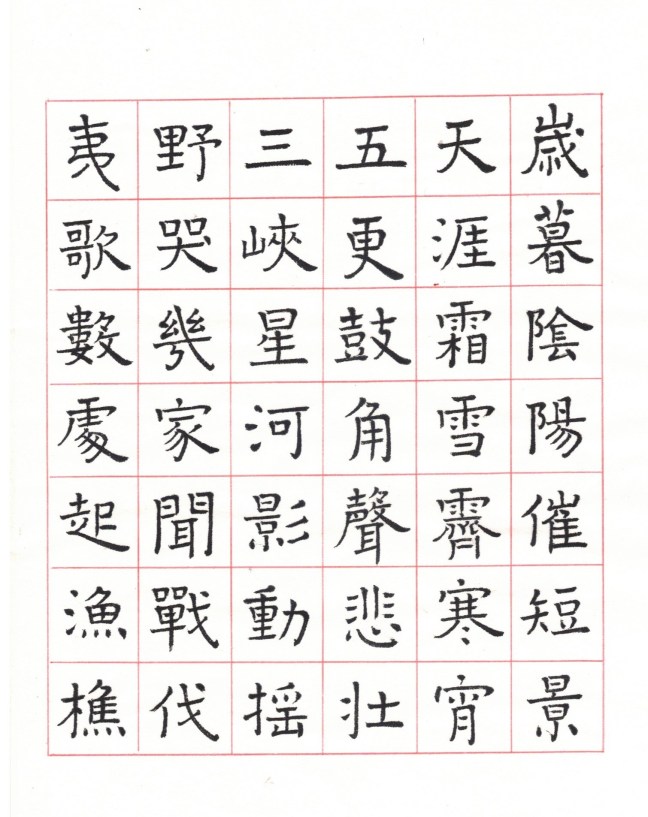 歲暮陰陽催短景
天涯霜雪霽寒宵
五更鼓角聲悲壯
三峽星河影動搖
野哭幾家聞戰伐
夷歌數處起漁樵